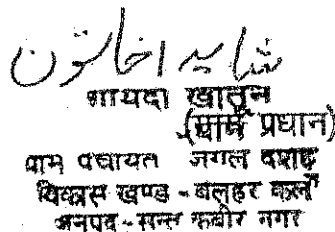 شایدہ خاتون
शायदा खातून
(ग्राम प्रधान)
ग्राम पंचायत जंगल दशहर
विकास खण्ड - बेलहर कलाँ
जनपद - सन्त कबीर नगर